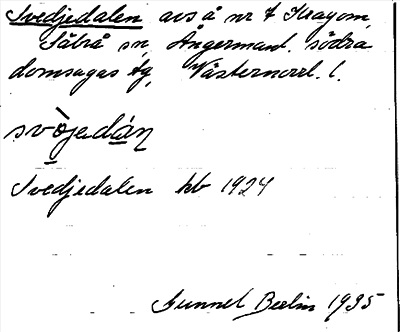 Svedjedalen avs å nr 7 Krayom,
Säbrå sn, Ångermanl. södra
domsagas tg, Västernorrl. l.
svòjedán
Svedjedalen hb 1924
Gunnel Berlin 1935